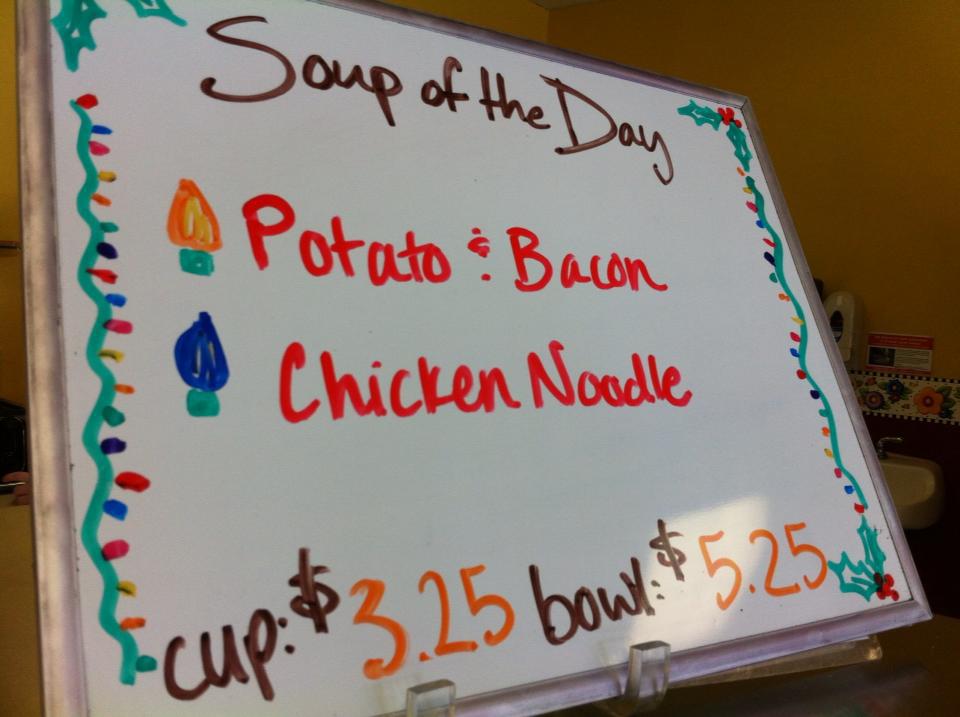 Soup of the Day
Potato & Bacon
Chicken Noodle
cup: $3.25 bowl: $5.25